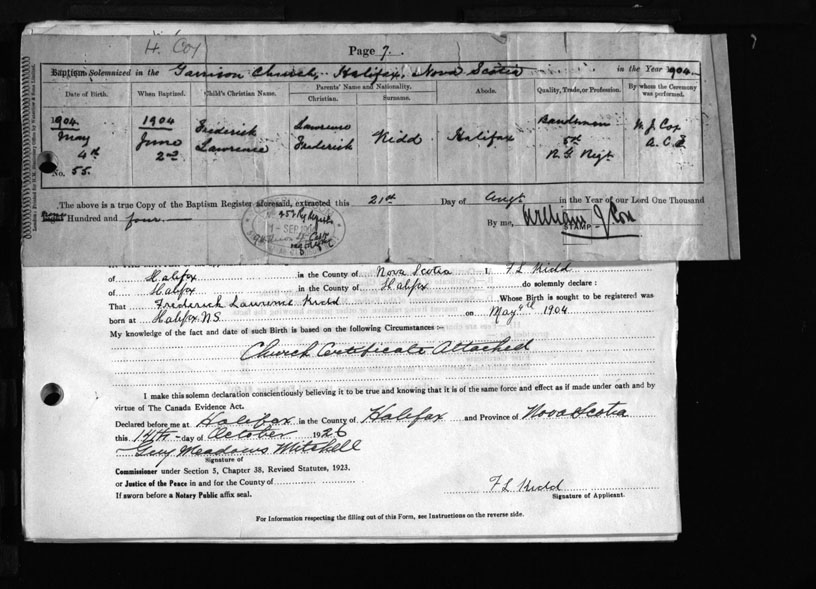 H. Cox
Page 7.
Baptism Solemnized in the Garrison Church, Halifax, Nova Scotia in the Year 1904
Date of Birth. When Baptized. Child's Christian Name. Parents' Name and Nationality. Christian. Surname. Abode. Quality, Trade, or Profession. By whom the Ceremony was performed.
1904 1904 Frederick Lawrence Kidd Halifax Bandsman W. J. Cox
May June Lawrence Frederick 5th A.C.
4th 2nd R. G. Regt
No. 55.
The above is a true Copy of the Baptism Register aforesaid, extracted this 21st Day of Augt in the Year of our Lord One Thousand
Hundred and four.
By me, William J Cox
STAMP
SEP
of Halifax in the County of Nova Scotia I. F L Kidd
of Halifax in the County of Halifax do solemnly declare :
That Frederick Lawrence Kidd Whose Birth is sought to be registered was
born at Halifax N.S. on May 4th 1904
My knowledge of the fact and date of such Birth is based on the following Circumstances :-
Church Certificate Attached
I make this solemn declaration conscientiously believing it to be true and knowing that it is of the same force and effect as if made under oath and by
virtue of The Canada Evidence Act.
Declared before me at Halifax in the County of Halifax and Province of Nova Scotia
this day of October 1926
Guy Meadows Mitchell
Signature of
Commissioner under Section 5, Chapter 38, Revised Statutes, 1923.
or Justice of the Peace in and for the County of
If sworn before a Notary Public affix seal.
F L Kidd
Signature of Applicant.
For Information respecting the filling out of this Form, see Instructions on the reverse side.